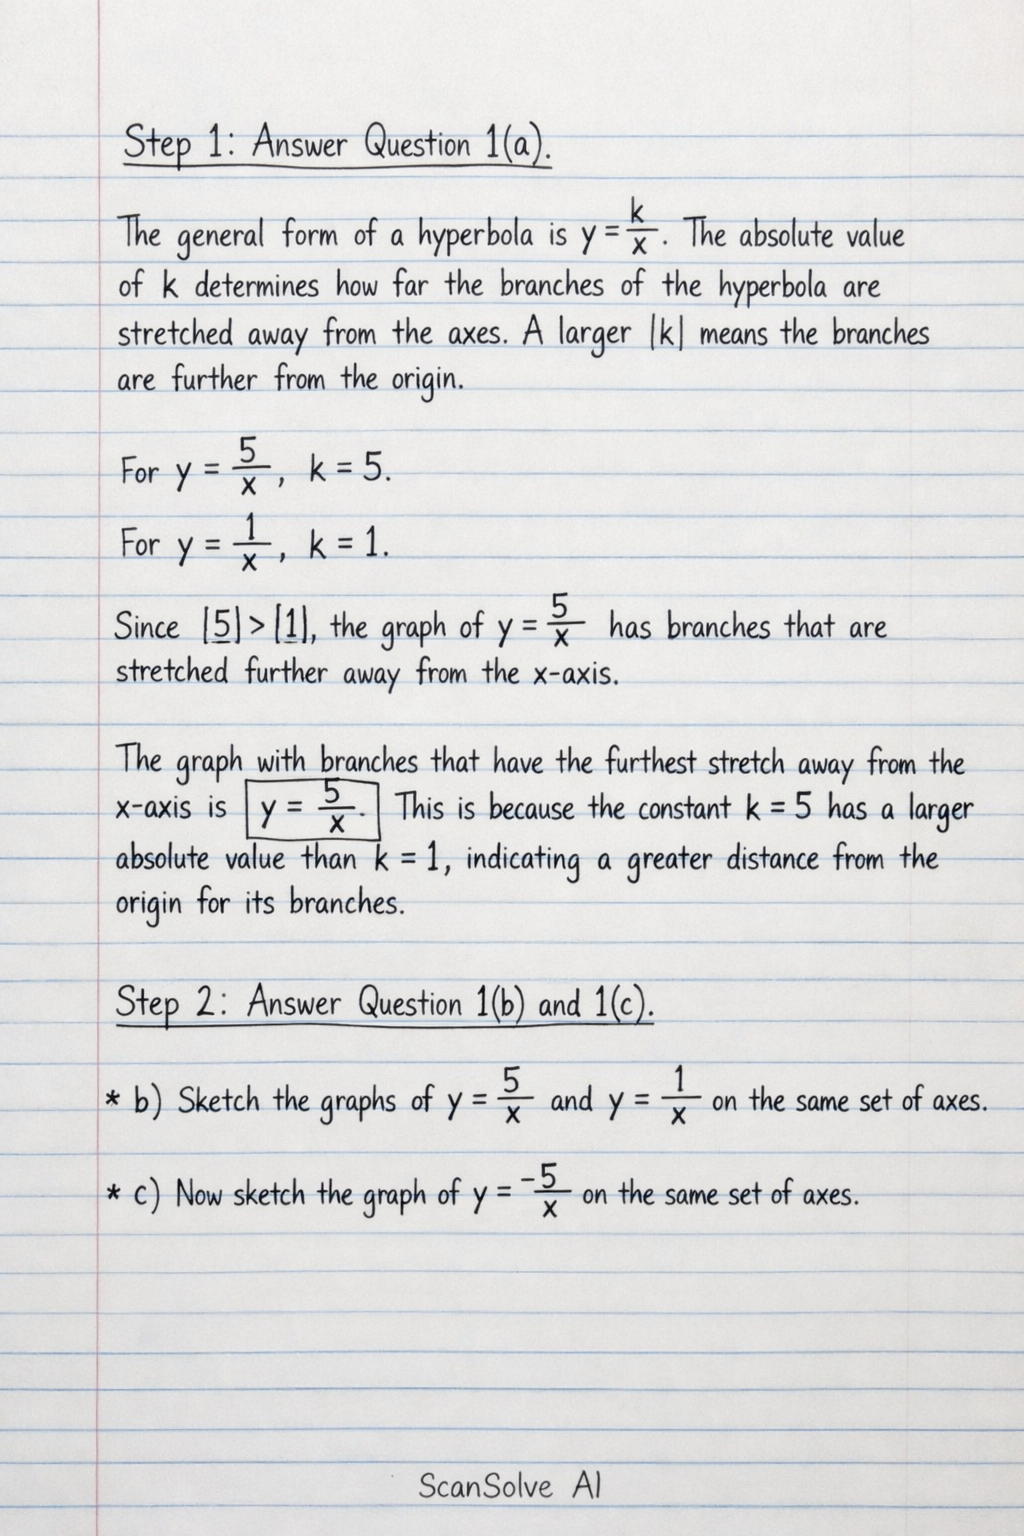 Step 1: Answer Question 1(a).
The general form of a hyperbola is y = k/x. The absolute value
of k determines how far the branches of the hyperbola are
stretched away from the axes. A larger |k| means the branches
are further from the origin.
For y = 5/x, k = 5.
For y = 1/x, k = 1.
Since |5| > |1|, the graph of y = 5/x has branches that are
stretched further away from the x-axis.
The graph with branches that have the furthest stretch away from the
x-axis is y = 5/x. This is because the constant k = 5 has a larger
absolute value than k = 1, indicating a greater distance from the
origin for its branches.
Step 2: Answer Question 1(b) and 1(c).
* b) Sketch the graphs of y = 5/x and y = 1/x on the same set of axes.
* c) Now sketch the graph of y = -5/x on the same set of axes.
ScanSolve AI